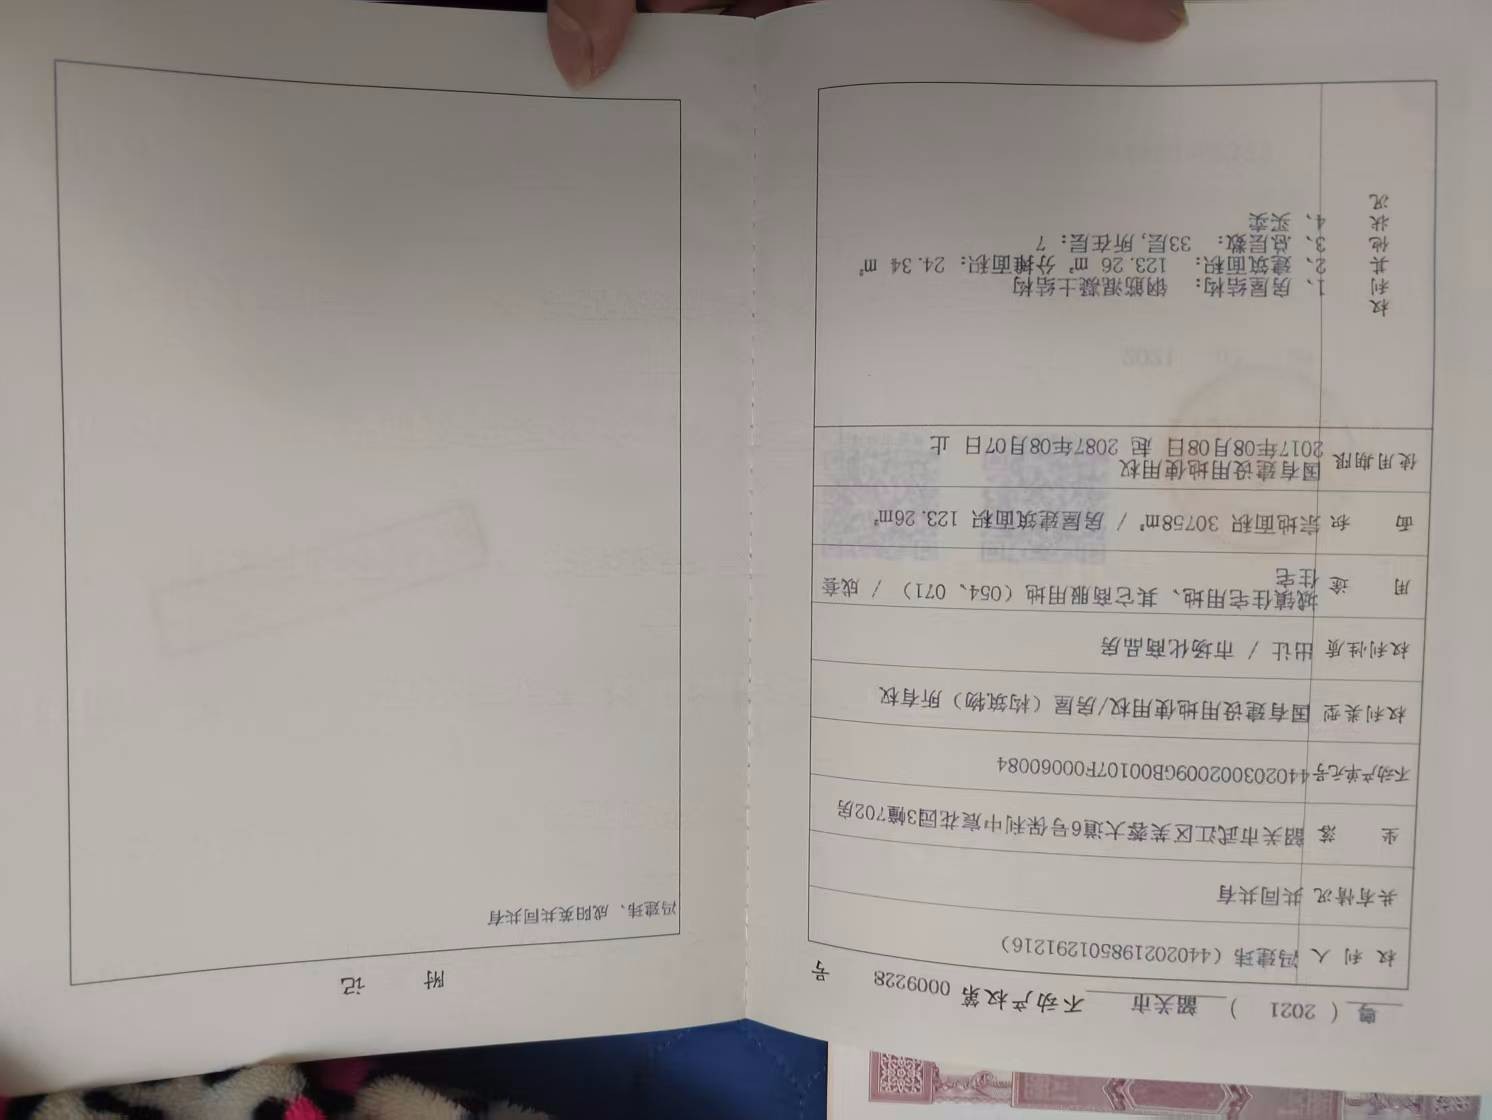 粤（ 2021 ） 韶关市 不动产权第 0009228 号
权 利 人 冯建玮（440202198501291216）
共有情况 共同共有
坐 落 韶关市武江区芙蓉大道6号保利中宸花园3幢702房
不动产单元号 440203002009GB00107F00060084
权利类型 国有建设用地使用权/房屋（构筑物）所有权
权利性质 出让 / 市场化商品房
用 途 城镇住宅用地、其它商服用地（054、071） / 成套
住宅
面 积 宗地面积 30758㎡ / 房屋建筑面积 123.26㎡
使用期限 国有建设用地使用权
2017年08月08日 起 2087年08月07日 止
权利其他状况
1、 房屋结构： 钢筋混凝土结构
2、 建筑面积： 123.26 ㎡ 分摊面积：24.34 ㎡
3、 总层数： 33层，所在层：7
4、 买卖
附 记
冯建玮、成阳英共同共有